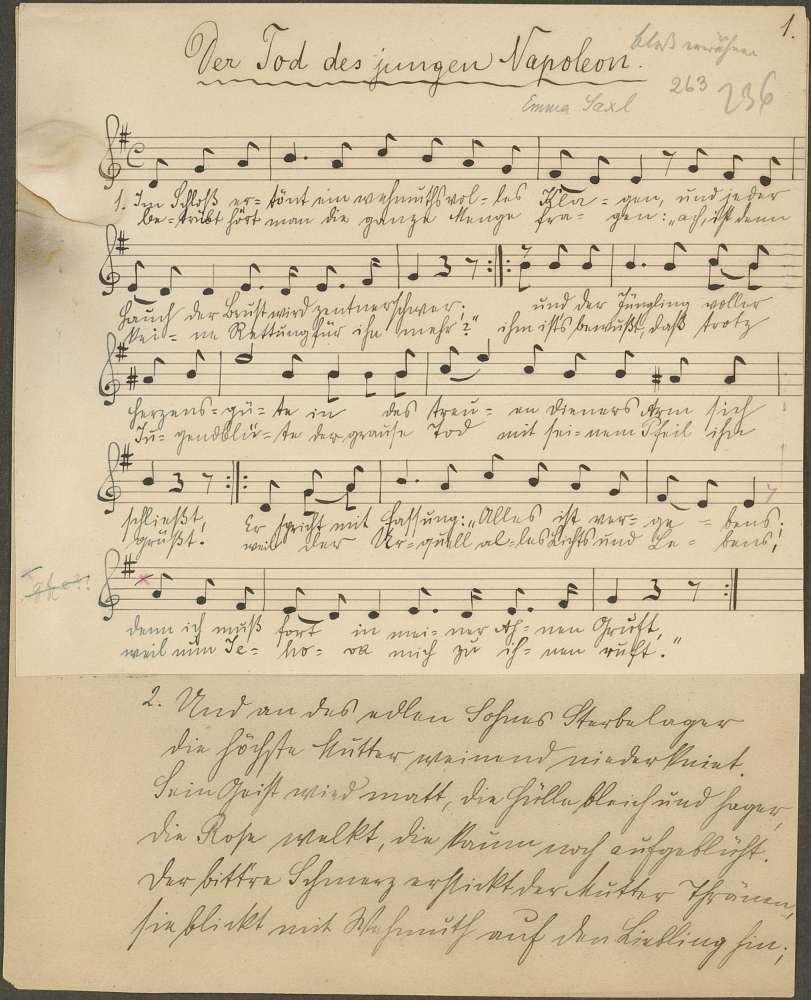 1.
Der Tod des jungen Napoleon.
bloß erwähnen
263 236
Emma Saxl
1. Im Schloß er= tönt ein wehmuthsvol= les Kla = gen, und jeder
be= trübt hört man die ganze Menge fra = gen: „ach, ist denn
Hauch der Brust wird zentnerschwer;      und der Jüngling voller
kei= ne Rettung für ihn mehr?"      ihm ists bewußt, daß trotz
Herzens= gü= te in des treu = en Dieners Arm sich
Ju= gendblü= te der grause Tod mit sei= nem Pfeil ihn
schließt,      Er spricht mit Fassung: „Alles ist ver= ge = bens;
grüßt.      weil der Ur= quell al= les Lichts und Le = bens,
denn ich muß fort in mei= ner Ah= nen Gruft,
weil nun Je= ho= va mich zu ih= nen ruft."
2. Und an des edlen Sohnes Sterbelager
die höchste Mutter weinend niederkniet.
Sein Geist wird matt, die Hülle bleich und hager,
die Rose welkt, die kaum noch aufgeblüht.
Der bitt're Schmerz erstickt der Mutter Thränen,
sie blickt mit Wehmuth auf den Liebling hin;